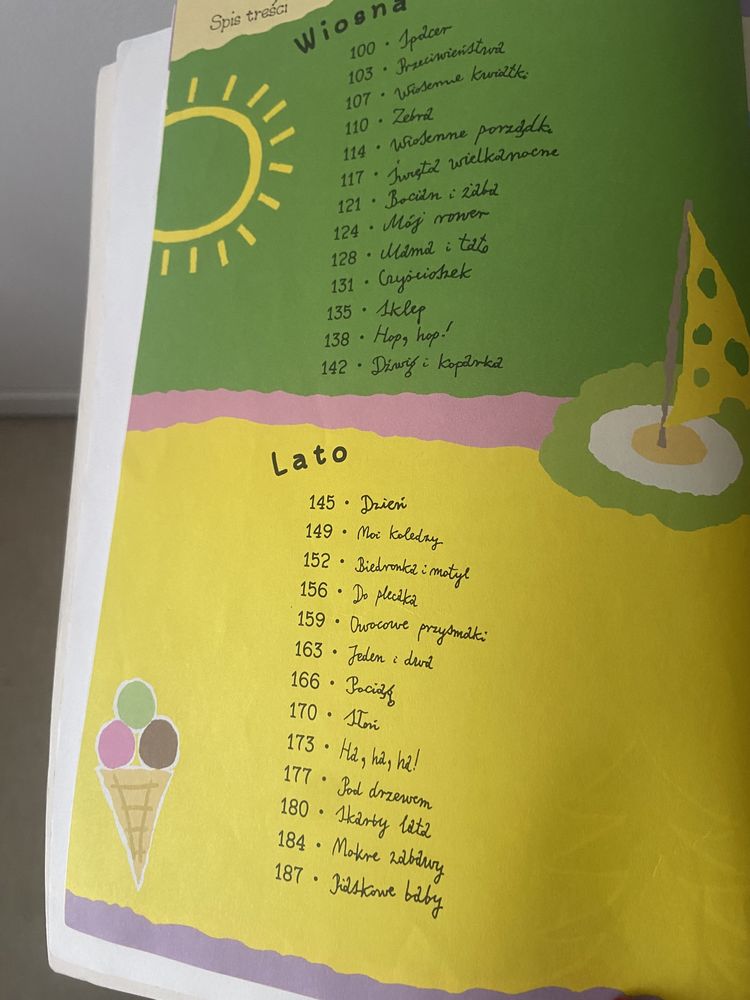 Spis treści
Wiosna
100 • Spacer
103 • Przeciwieństwa
107 • Wiosenne kwiatki
110 • Zebra
114 • Wiosenne porządki
117 • Święta wielkanocne
121 • Bocian i żaba
124 • Mój rower
128 • Mama i tato
131 • Czyścioszek
135 • Sklep
138 • Hop, hop!
142 • Dźwig i koparka
Lato
145 • Dzień
149 • Moi koledzy
152 • Biedronka i motyl
156 • Do plecaka
159 • Owocowe przysmaki
163 • Jeden i dwa
166 • Pociąg
170 • Słoń
173 • Ha, ha, ha!
177 • Pod drzewem
180 • Skarby lata
184 • Mokre zabawy
187 • Piaskowe baby